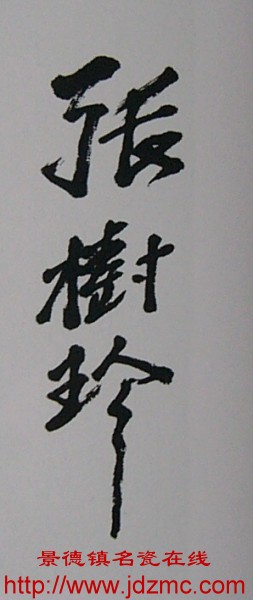 張
樹
玲
景德镇名瓷在线
http://www.jdzmc.com